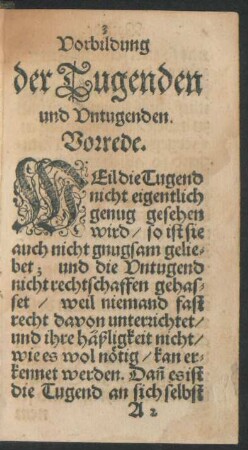 3
Vorbildung
der Tugenden
und Vntugenden.
Vorrede.
WEil die Tugend
nicht eigentlich
genug gesehen
wird / so ist sie
auch nicht gnugsam gelie-
bet; und die Vntugend
nicht rechtschaffen gehas-
set / weil niemand fast
recht davon unterrichtet /
und ihre häßligkeit nicht /
wie es wol nötig / kan er-
kennet werden. Dañ es ist
die Tugend an sich selbst
A2